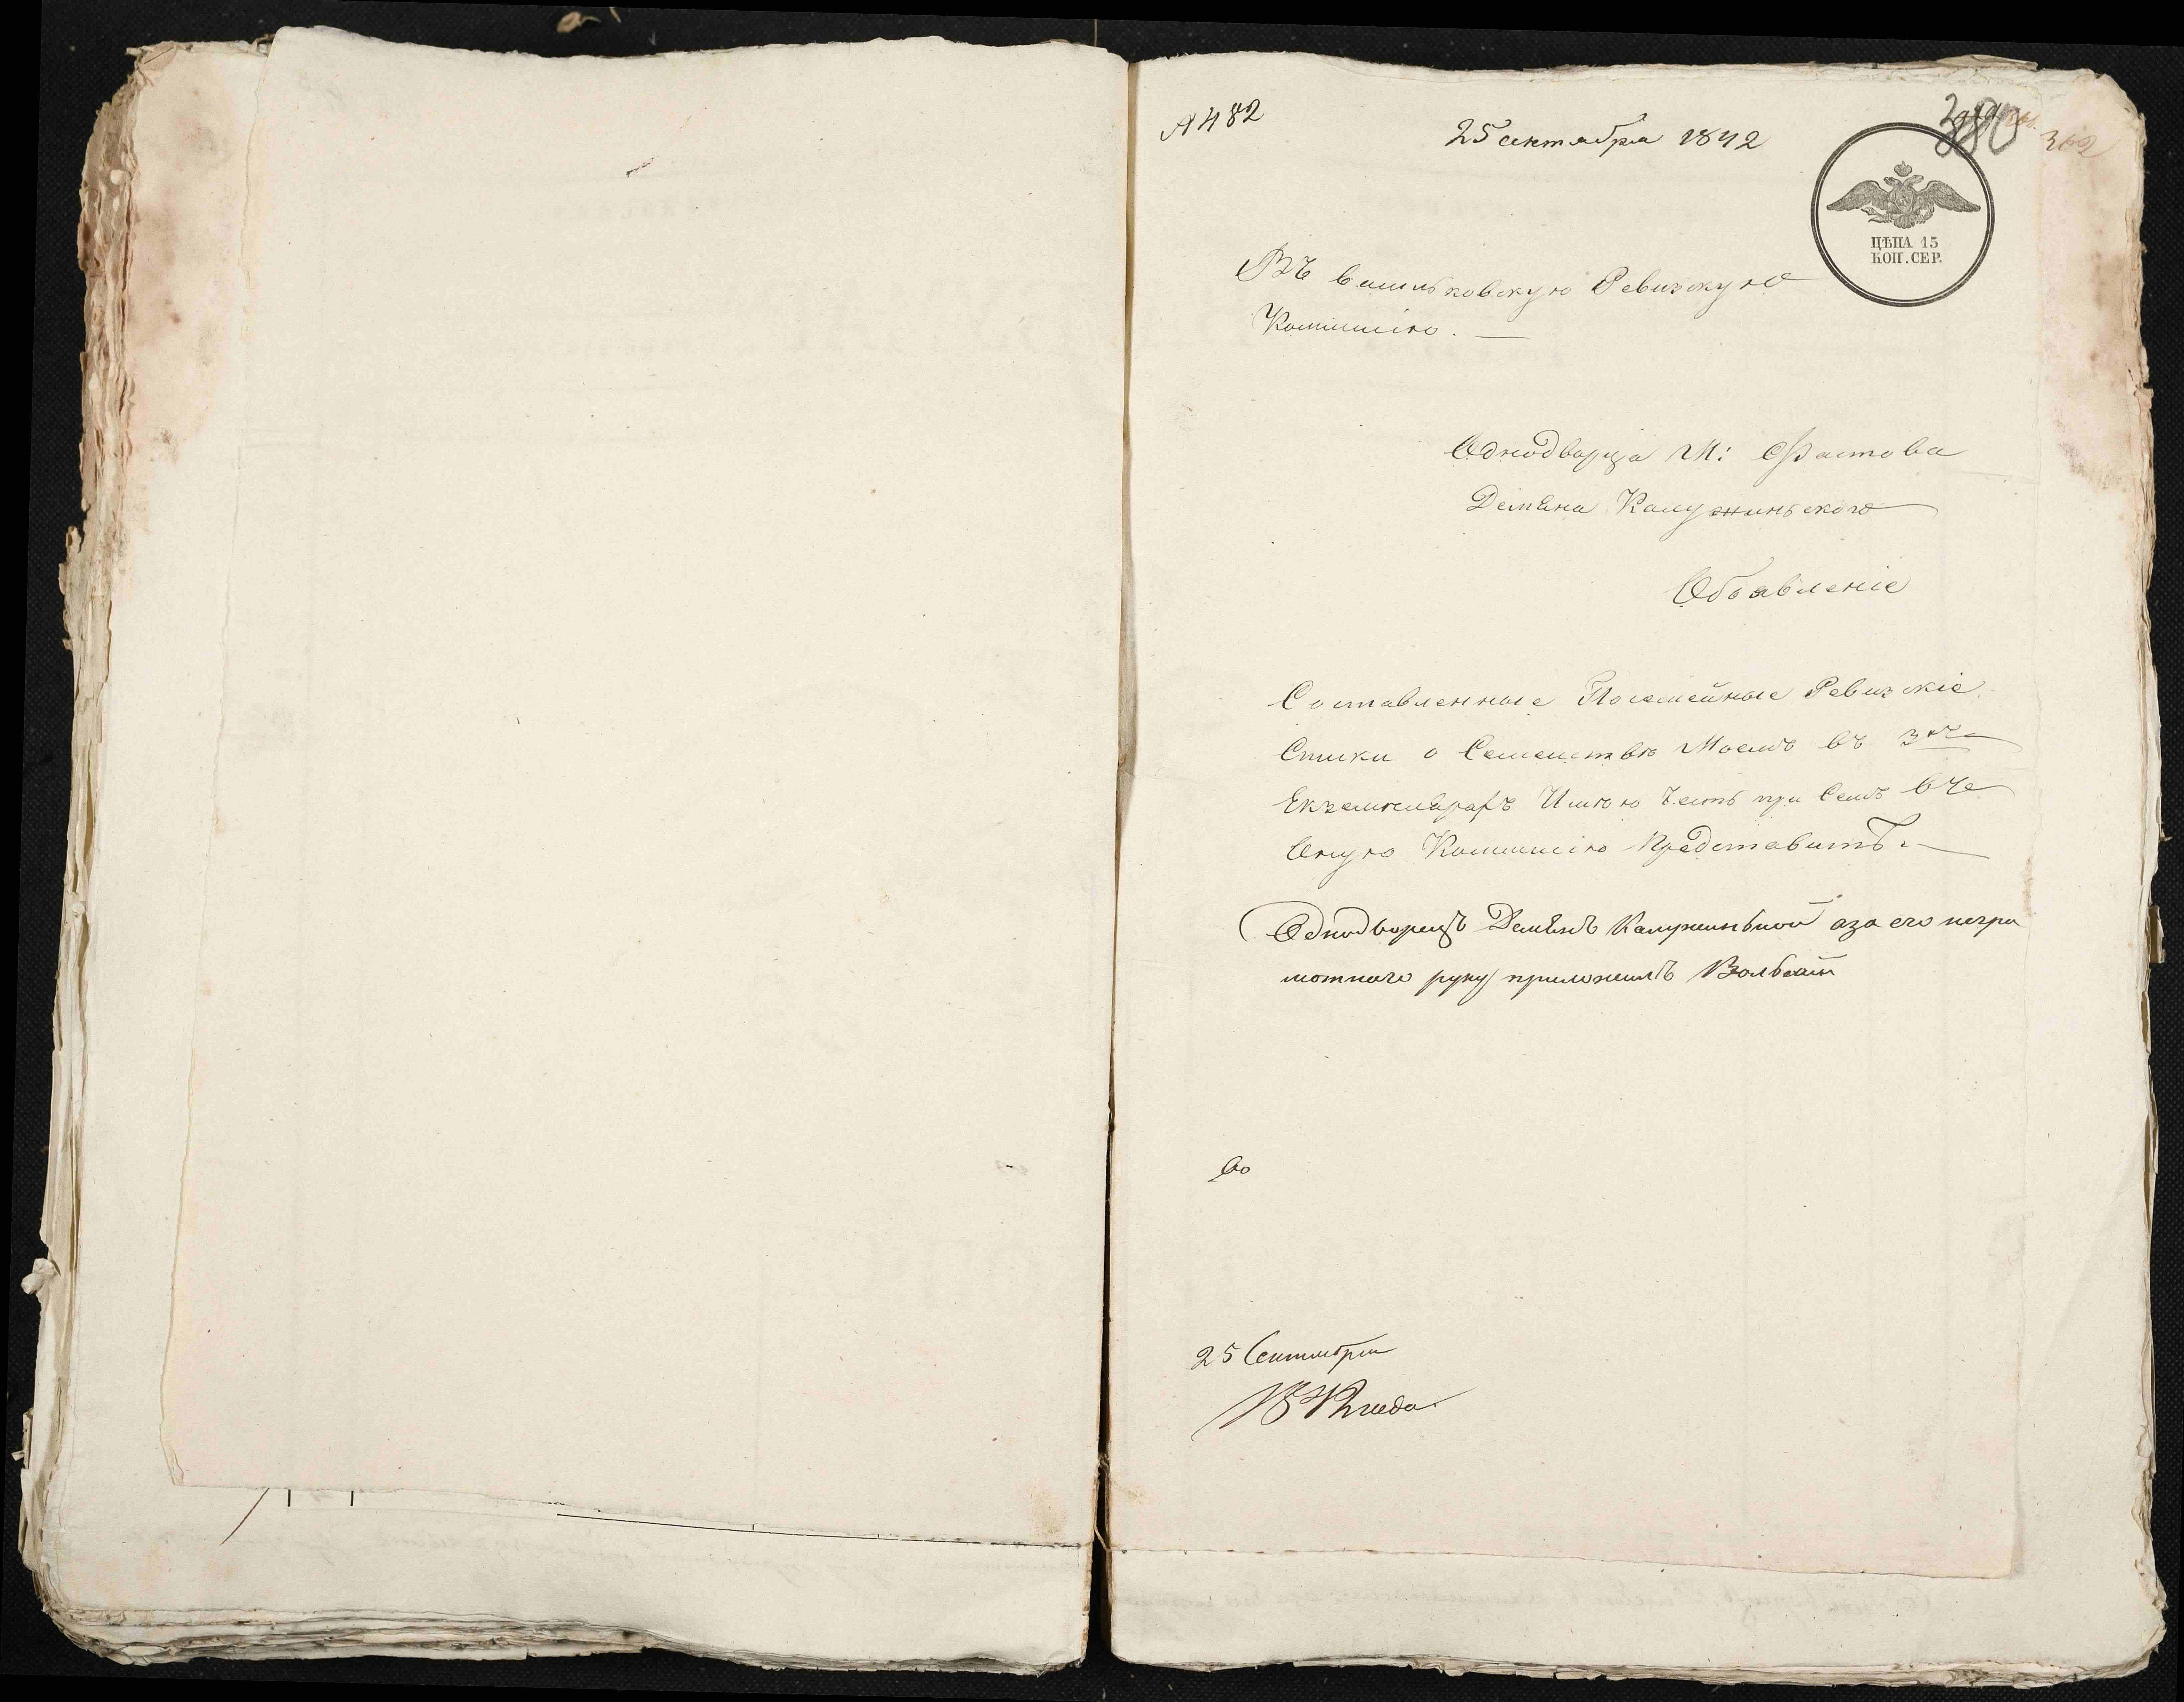 № 482
25 сентября 1842
380
362
ЦѢНА 15
КОП. СЕР.
Въ васильковскую Ревизскую
Коммисію. —
Однодворца М: Фастова
Демяна Калужинського
Объявленіе
Составленные Посемейные Ревизкіе
Списки о Семействѣ Моемъ въ 3хъ
Екземплярахъ Имѣю Честь при Семъ въ
Оную Коммисію Представить. —
Однодворецъ Демянъ Калужинський аза его негра
мотнаго руку приложилъ
во
25 Сентября